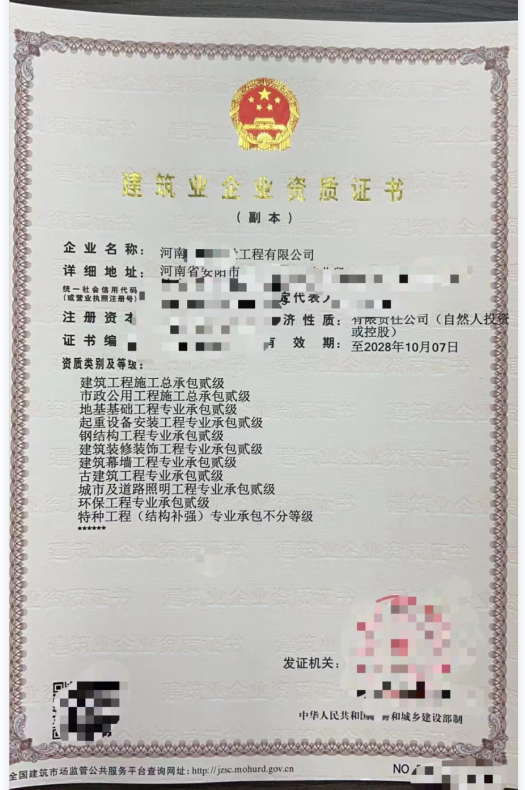 建筑业企业资质证书
（副本）
企业名称：河南 工程有限公司
详细地址：河南省安阳市
统一社会信用代码
（或营业执照注册号）
定代表人
注册资本
济性质：有限责任公司（自然人投资
或控股）
证书编
有效期：至2028年10月07日
资质类别及等级：
建筑工程施工总承包贰级
市政公用工程施工总承包贰级
地基基础工程专业承包贰级
起重设备安装工程专业承包贰级
钢结构工程专业承包贰级
建筑装修装饰工程专业承包贰级
建筑幕墙工程专业承包贰级
古建筑工程专业承包贰级
城市及道路照明工程专业承包贰级
环保工程专业承包贰级
特种工程（结构补强）专业承包不分等级
******
发证机关：
中华人民共和 和城乡建设部制
全国建筑市场监管公共服务平台查询网址：http://jzsc.mohurd.gov.cn
NO